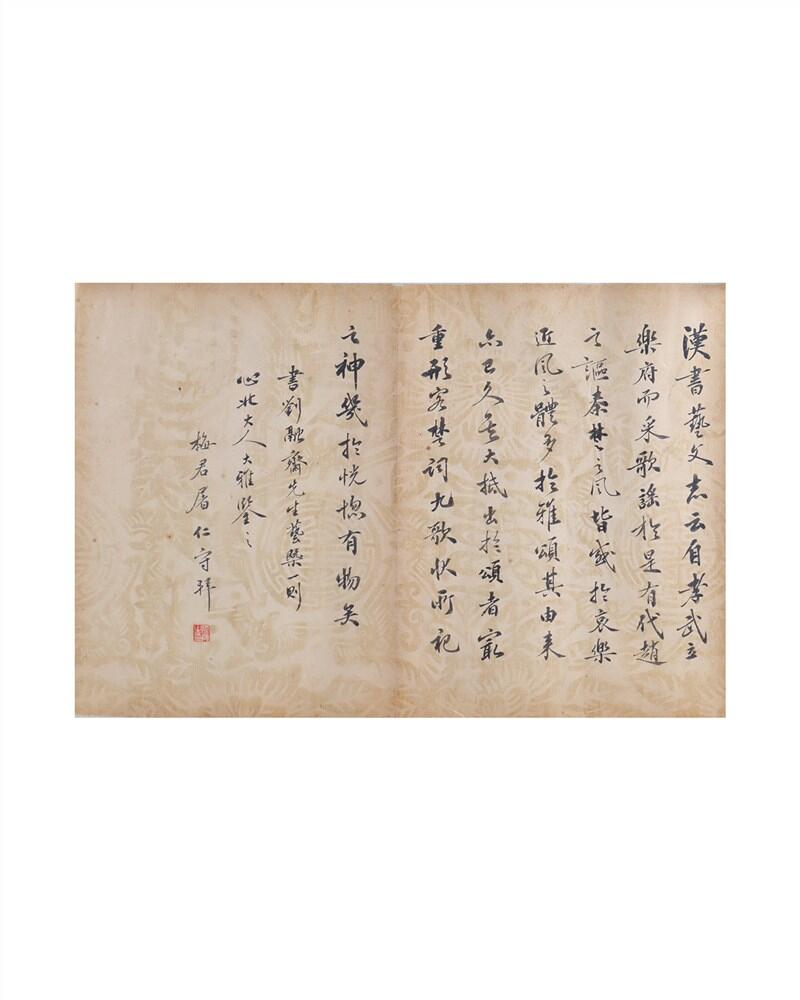 漢書藝文志云自孝武立
樂府而采歌謠於是有代趙
之謳秦楚之風皆感於哀樂
近風之體多於雅頌其由來
亦已久矣大抵出於頌者寂
重形容楚詞九歌狀所祀
之神幾於恍惚有物矣
書劉融齋先生藝槩一則
心北大人大雅鑒之
梅君屠仁守拜